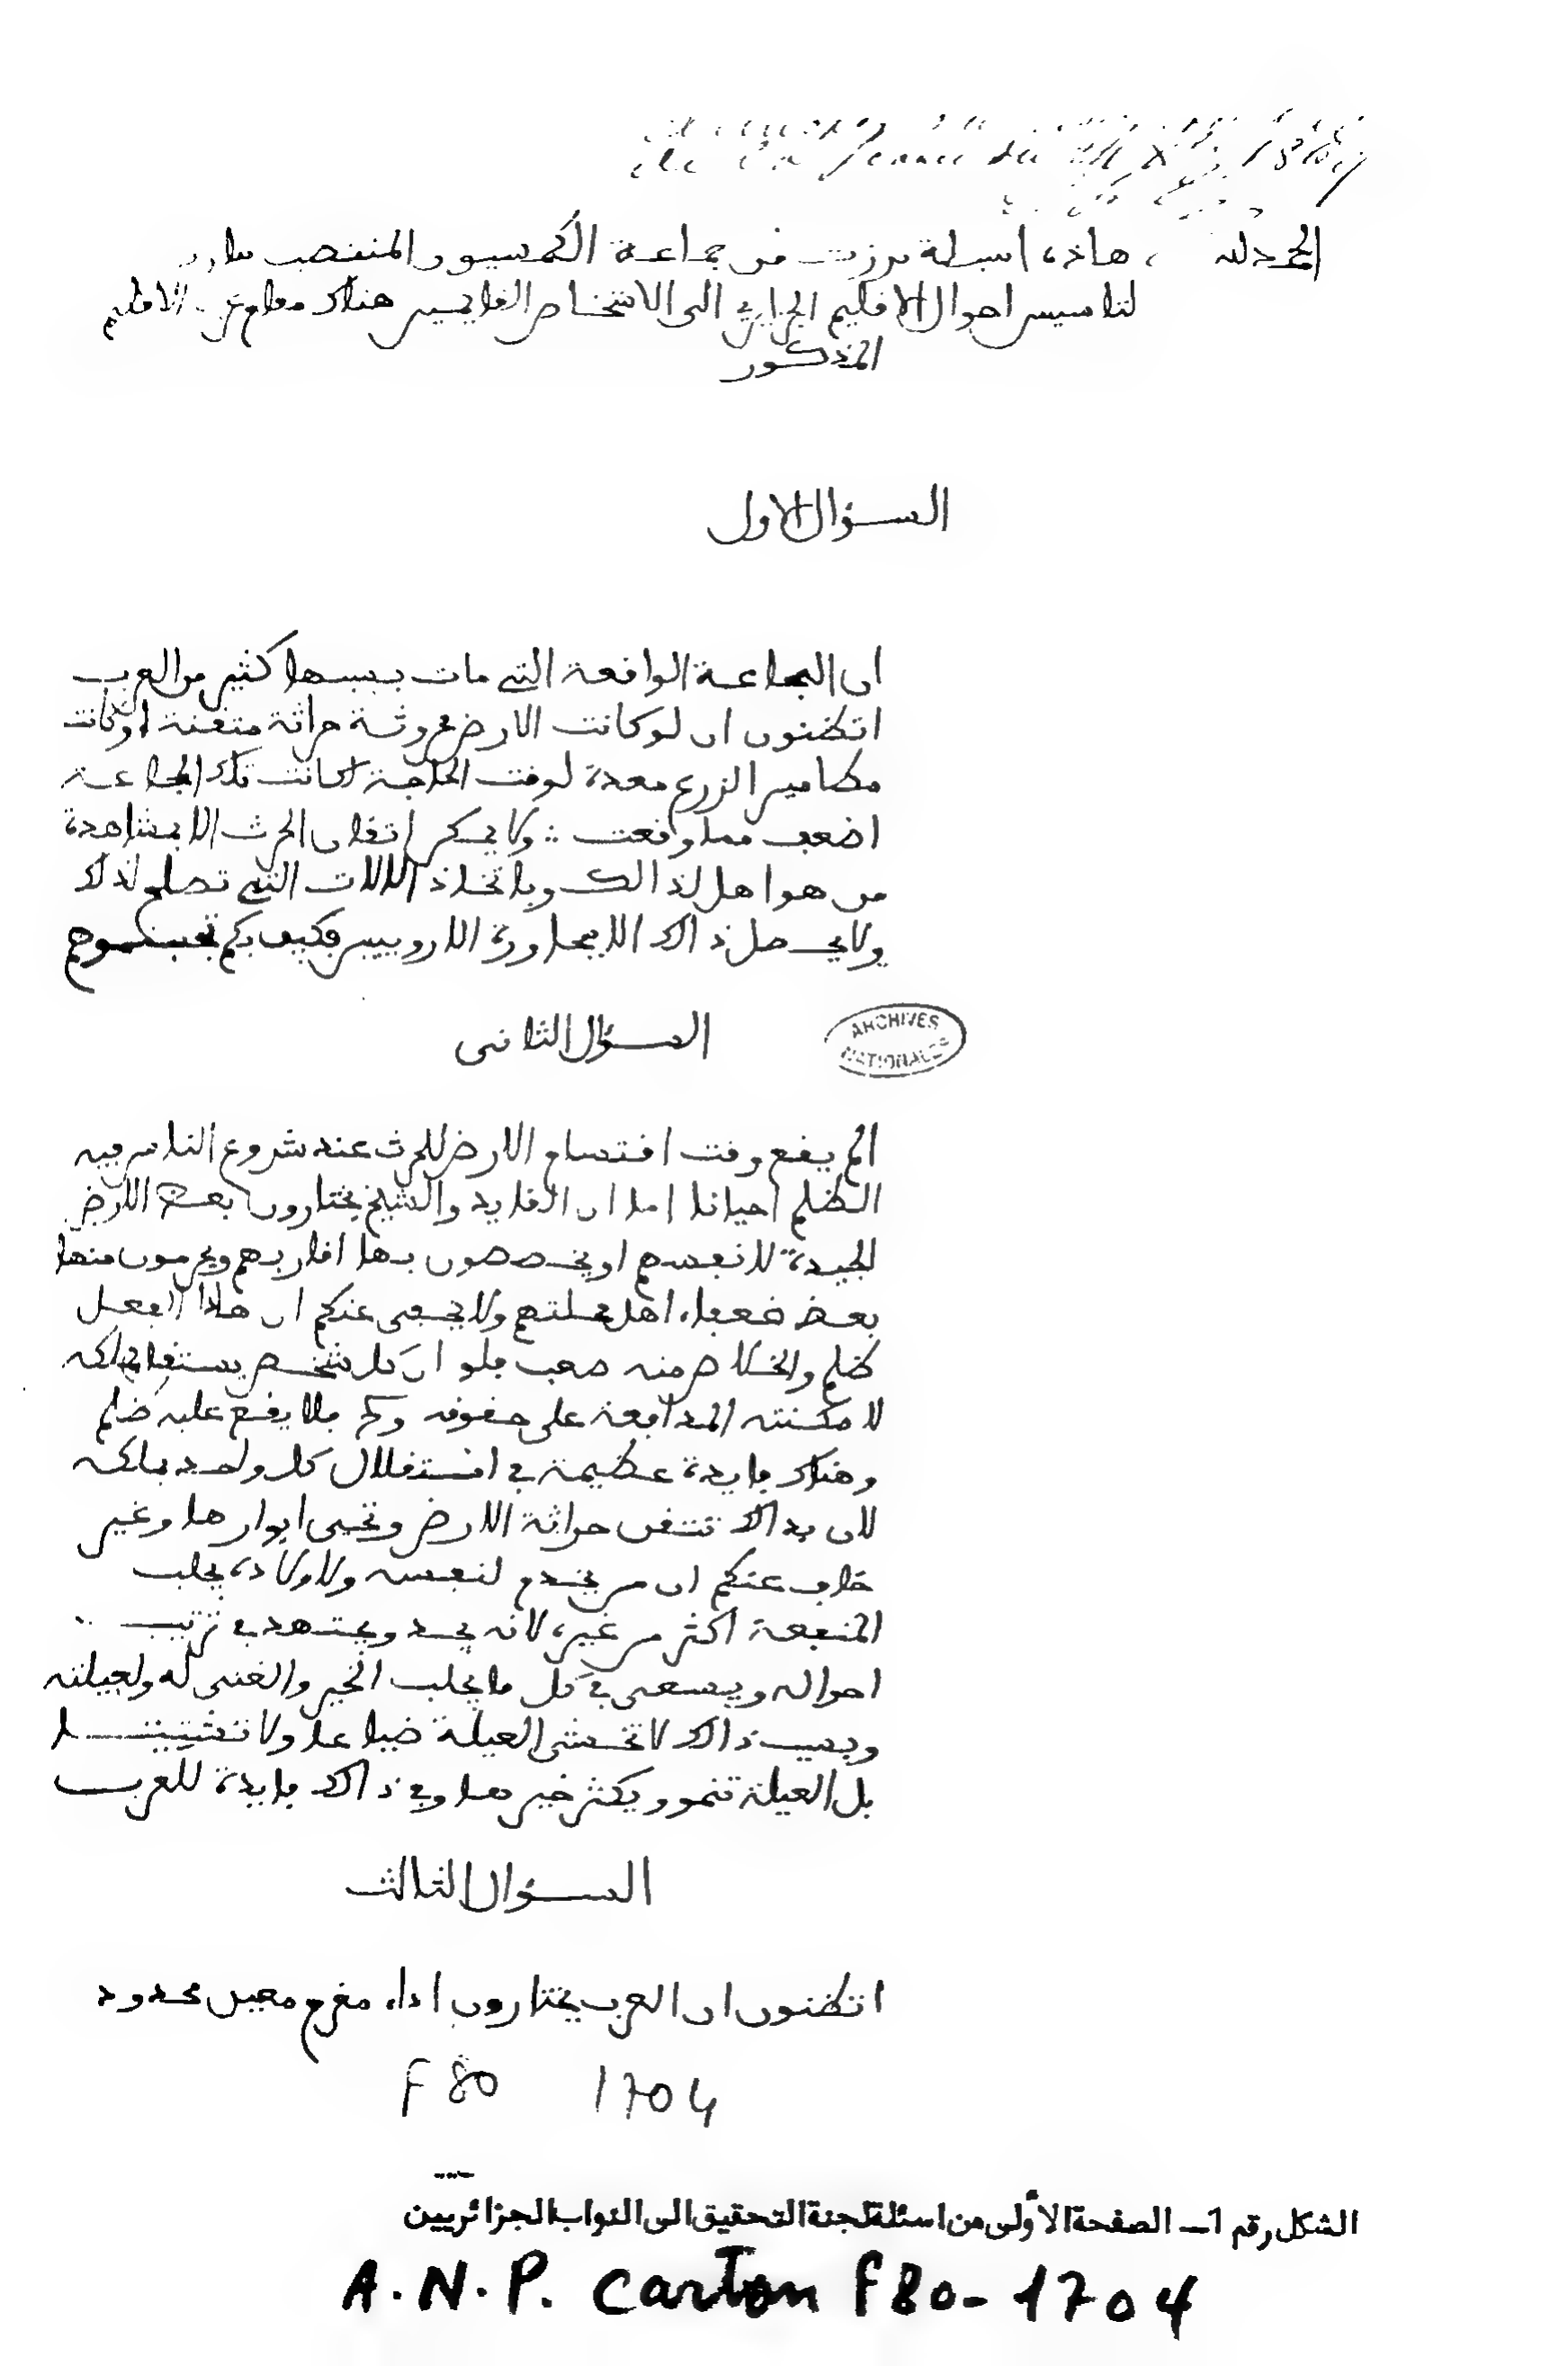 de la séance du
الحمد لله ، هاذه اسيلة برزت من جماعة الكمسيون المنتصب
لتاسيس احوال الاقليم الجزايري الى الاشخاص القايمين هناك مقام عرب الاقليم
المذكور
السؤال الاول
ان المجاعة الواقعة التي مات بسببها كثير من العرب
اتظنون ان لو كانت الارض محروثة حراثة متقنة او كانت
مطامير الزرع معدة لوقت الحاجة لكانت تلك المجاعة
اضعف مما وقعت ∴ ولا يمكن اتقان الحرث الا بمشاهدة
من هو اهل لذالك وباتخاذ الالات التي تصلح لذلك
ولا يحصل ذالك الا بمجاورة الاروبيين فكيف بكم
السؤال الثاني
ARCHIVES
NATIONALES
الم يقع وقت اقتسام الارض للحرث عند شروع الناس فيه
الظلم احيانا اما ان القايد والشيخ يختارون بعض الارض
الجيدة لانفسهم او يخصصون بها اقاربهم ويحرمون منها
بعض ضعفاء اهل محلتهم ولا يخفى عنكم ان هاذا الفعل
ظلم والخلاص منه صعب فلو ان كل شخص يستقل بملكه
لا مكنته المدافعة على حقوقه ولم فلا يقع عليه ضلم
وهناك فايدة عظيمة في استقلال كل واحد بملكه
لان بذالك تتقن حراثة الارض وتحيى ابوارها وغير
خاف عنكم ان من يخدم لنفسه ولاولاده يجلب
المنفعة اكثر من غيره لانه يجد ويجتهد في ترتيب
احواله ويسعى في كل ما يجلب الخير والغنى له ولعيلته
وبسبب ذالك لا تخشى العيلة ضياعا ولا تشتيتا
بل العيلة تنمو ويكثر خيرها وفي ذالك فايدة للعرب
السؤال الثالث
اتظنون ان العرب يختارون اداء مغرم معين محدود
F 80 1704
الشكل رقم 1 ـ الصفحة الأولى من اسئلة لجنة التحقيق الى النواب الجزائريين
A.N.P. Carton F80-1704